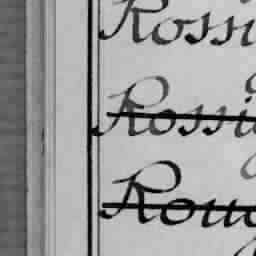 Rossi
Rossig
Roug